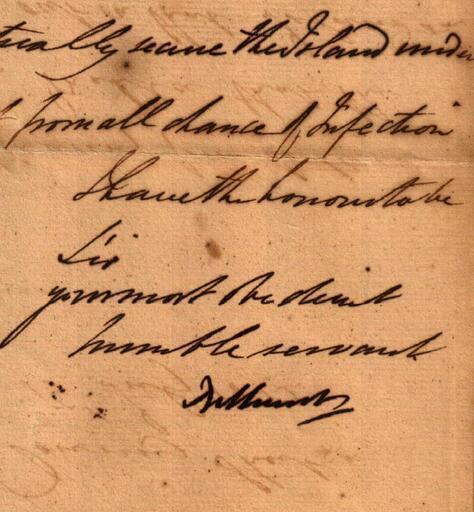 secure the Island under
from all chance of Infection
I have the honour to be
Sir
your most Obedient
humble servant